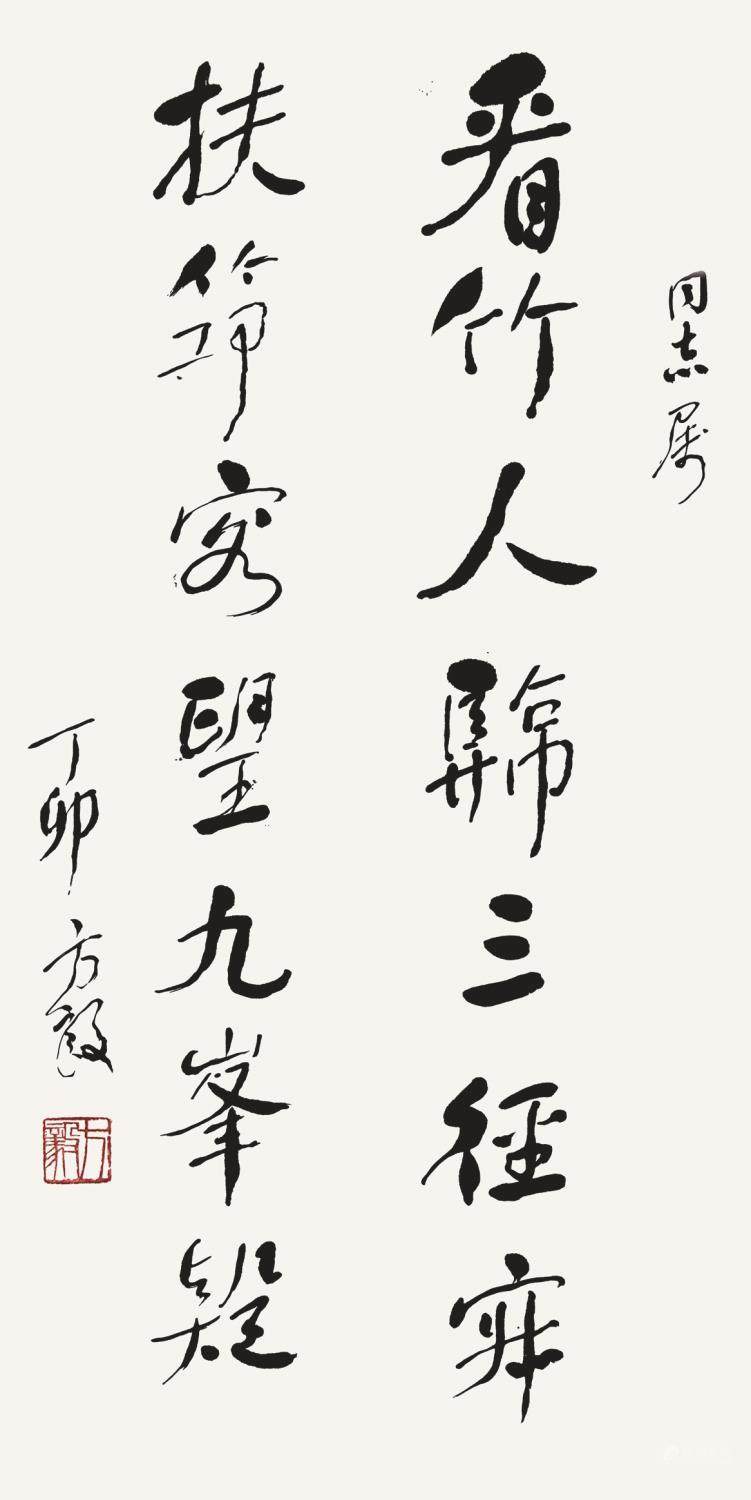 同志属
看竹人歸三徑寂
扶筇客望九峯疑
丁卯 方毅
方毅